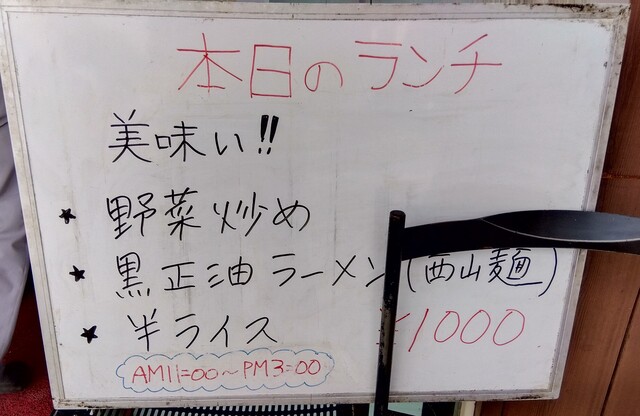 本日のランチ
美味い!!
★ 野菜炒め
★ 黒正油ラーメン(西山麺)
★ 半ライス ¥1000
AM11:00~PM3:00